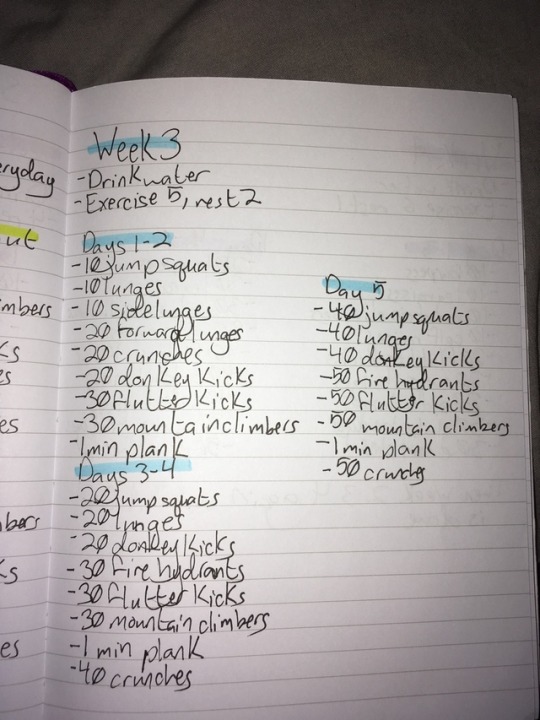 Week 3
-Drink water
-Exercise 5, rest 2
Days 1-2
-10 jump squats
-10 lunges
-10 side lunges
-20 forward lunges
-20 crunches
-20 donkey kicks
-30 flutter kicks
-30 mountain climbers
-1 min plank
Days 3-4
-20 jump squats
-20 lunges
-20 donkey kicks
-30 fire hydrants
-30 flutter kicks
-30 mountain climbers
-1 min plank
-40 crunches
Day 5
-40 jump squats
-40 lunges
-40 donkey kicks
-50 fire hydrants
-50 flutter kicks
-50 mountain climbers
-1 min plank
-50 crunches